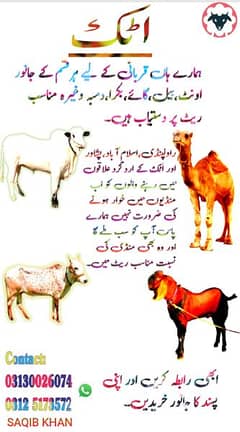 اٹک
ہمارے ہاں قربانی کے لیے ہر قسم کے جانور
اونٹ، بیل، گائے، بکرا، دمبہ وغیرہ مناسب
ریٹ پر دستیاب ہیں۔
راولپنڈی، اسلام آباد، پشاور
اور اٹک کے اردگرد علاقوں
میں رہنے والوں کو اب
منڈیوں میں خوار ہونے
کی ضرورت نہیں ہمارے
پاس آپ کو سب ملے گا
اور وہ بھی منڈی کی
نسبت مناسب ریٹ میں۔
ابھی رابطہ کریں اور اپنی
پسند کا جانور خریدیں۔
Contact:
03130026074
0312 5173572
SAQIB KHAN